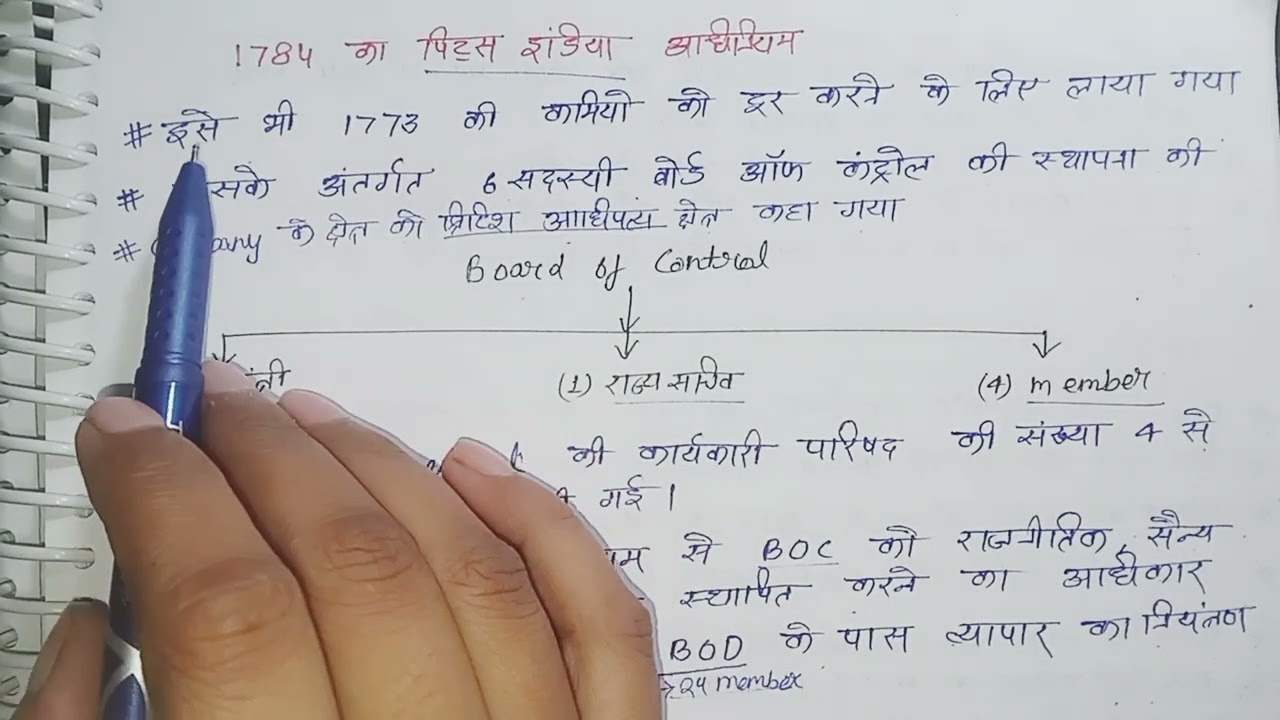 1784 का पिट्स इंडिया अधिनियम
# इसे भी 1773 की कमियो को दूर करने के लिए लाया गया
# सके अंतर्गत 6 सदस्यी बोर्ड ऑफ कंट्रोल की स्थापना की
# के क्षेत्र को ब्रिटिश आधिपत्य क्षेत्र कहा गया
Board of Control
(1) राज्य सचिव
(4) member
की कार्यकारी परिषद की संख्या 4 से
गई ।
से BOC को राजनीतिक, सैन्य
स्थापित करने का अधिकार
BOD के पास व्यापार का नियंत्रण
→ 24 member